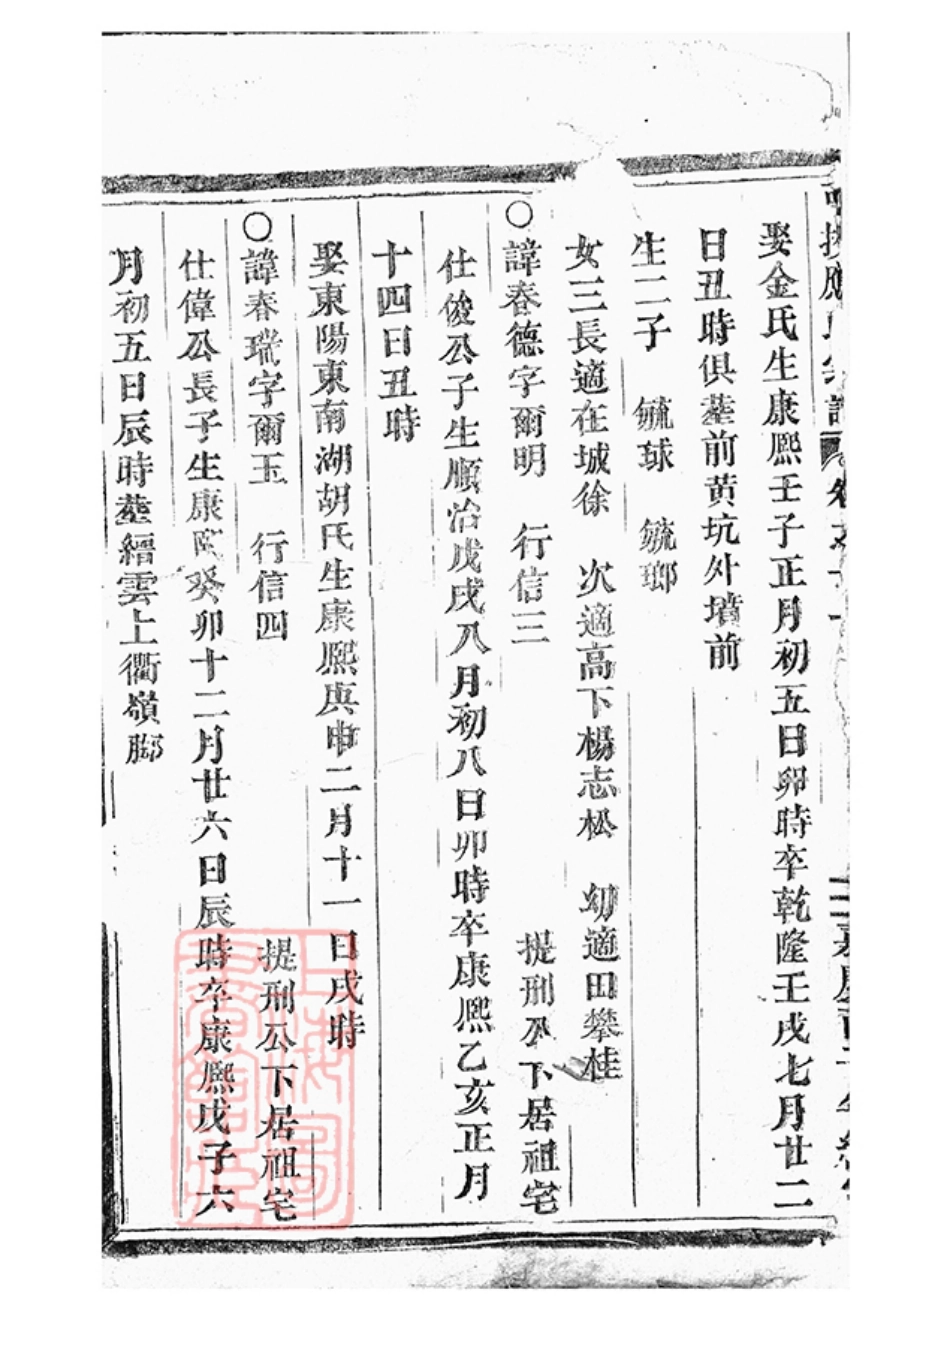 應氏
娶金氏生康熙壬子正月初五日卯時卒乾隆壬戌七月廿二
日丑時俱塟前黄坑外墳前
生二子 毓球 毓瑯
女三長適在城徐 次適高下楊志松 幼適田攀桂
○諱春德字爾明 行信三 提刑公下居祖宅
仕俊公子生順治戊戌八月初八日卯時卒康熙乙亥正月
十四日丑時
娶東陽東南湖胡氏生康熙庚申二月十一日戌時
○諱春瑞字爾玉 行信四 提刑公下居祖宅
仕偉公長子生康熙癸卯十二月廿六日辰時卒康熙戊子六
月初五日辰時塟縉雲上衢嶺脚